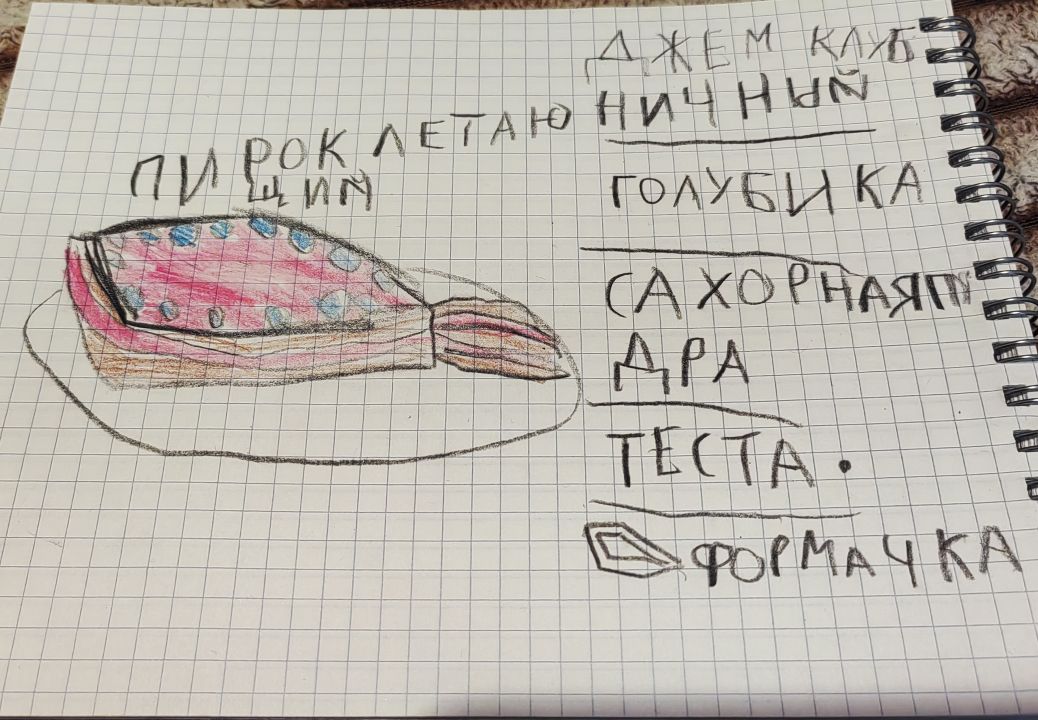 ПИРОК ЛЕТАЮ
ЩИЙ
ДЖЕМ КЛУБ
НИЧНЫЙ
ГОЛУБИКА
САХОРНАЯПУ
ДРА
ТЕСТА.
ФОРМАЧКА